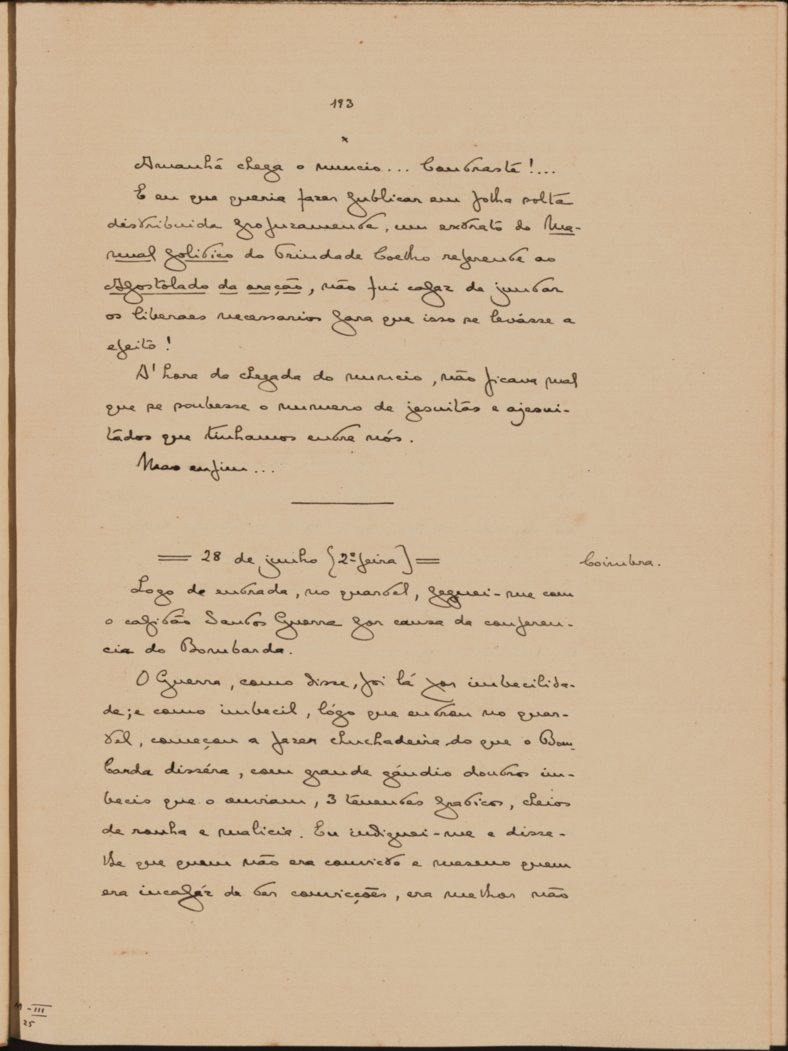 193
x
Amanhã chega o nuncio... Contraste!...
E eu que queria fazer publicar em folha solta
distribuida profuzamente, um extrato do Ma-
nual politico do Trindade Coelho referente ao
Apostolado da oração, não fui capaz de juntar
os liberaes necessarios para que isso se levásse a
efeito!
A' hora da chegada do nuncio, não ficava mal
que se soubesse o numero de jesuitas e ajesui-
tádos que tinhamos entre nós.
Mas enfim...
= 28 de junho [2ª-feira] =
Coimbra.
Logo de entrada, no quartel, peguei-me com
o capitão Santos Guerra por causa da conferen-
cia do Bombarda.
O Guerra, como disse, foi lá por imbecilida-
de; e como imbecil, lógo que entrou no quar-
tel, começou a fazer chuchadeira do que o Bom-
barda disséra, com grande gáudio doutros im-
becis que o ouviam, 3 tenentes praticos, cheios
de ronha e malicia. Eu indignei-me e disse-
lhe que quem não era convicto e mesmo quem
era incapáz de ter convicções, era melhor não
M-III
25